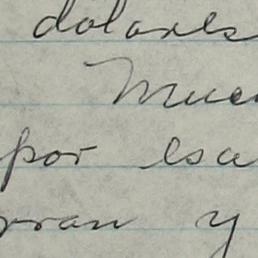 dolores
Muc
por esa
rran y